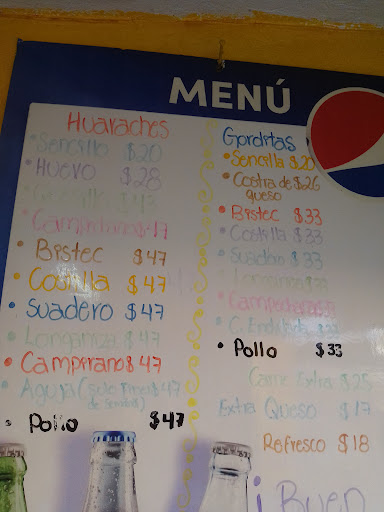 MENÚ
Huaraches
• Sencillo $20
• Huevo $28
$43
• Campechano $47
• Bistec $47
• Costilla $47
• Suadero $47
• Longaniza $47
• Campirano $47
• Aguja (solo fines $47
de semana)
• Pollo $47
Gorditas
• Sencilla $20
• Costra de $26
queso
• Bistec $33
• Costilla $33
• Suadero $33
• Longaniza $33
• Campechana
• C. Enchilada $33
• Pollo $33
Carne Extra $25
Extra Queso $17
Refresco $18
¡Buen